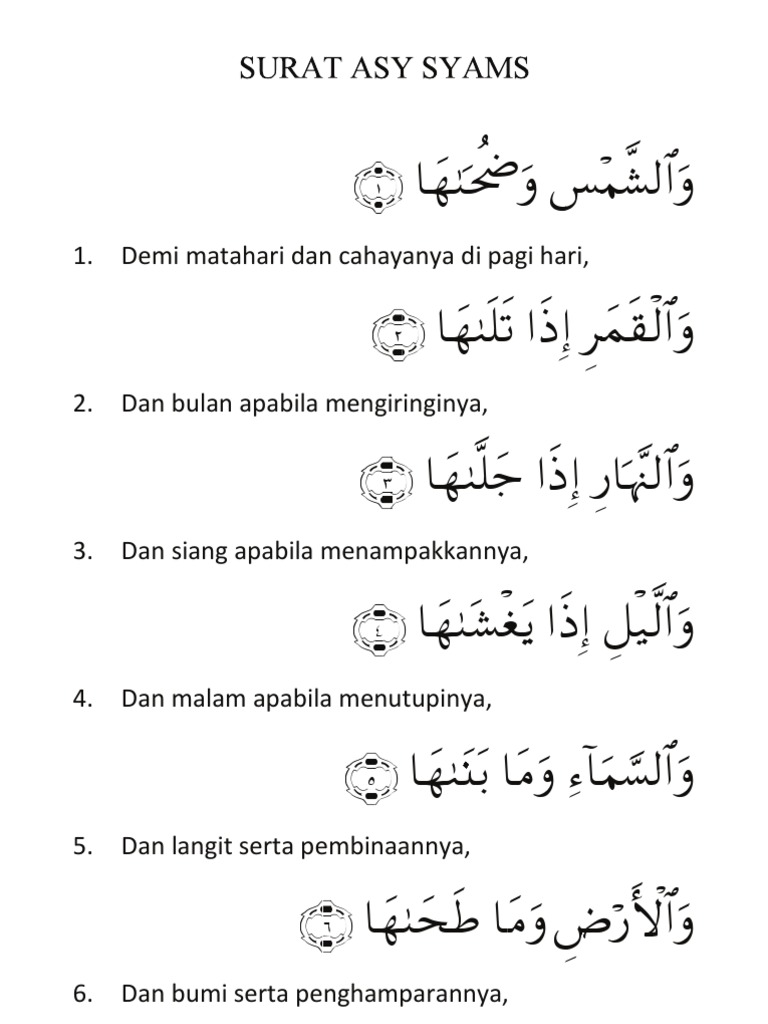 SURAT ASY SYAMS
وَٱلشَّمْسِ وَضُحَىٰهَا ١
1. Demi matahari dan cahayanya di pagi hari,
وَٱلْقَمَرِ إِذَا تَلَىٰهَا ٢
2. Dan bulan apabila mengiringinya,
وَٱلنَّهَارِ إِذَا جَلَّىٰهَا ٣
3. Dan siang apabila menampakkannya,
وَٱلَّيْلِ إِذَا يَغْشَىٰهَا ٤
4. Dan malam apabila menutupinya,
وَٱلسَّمَآءِ وَمَا بَنَىٰهَا ٥
5. Dan langit serta pembinaannya,
وَٱلْأَرْضِ وَمَا طَحَىٰهَا ٦
6. Dan bumi serta penghamparannya,